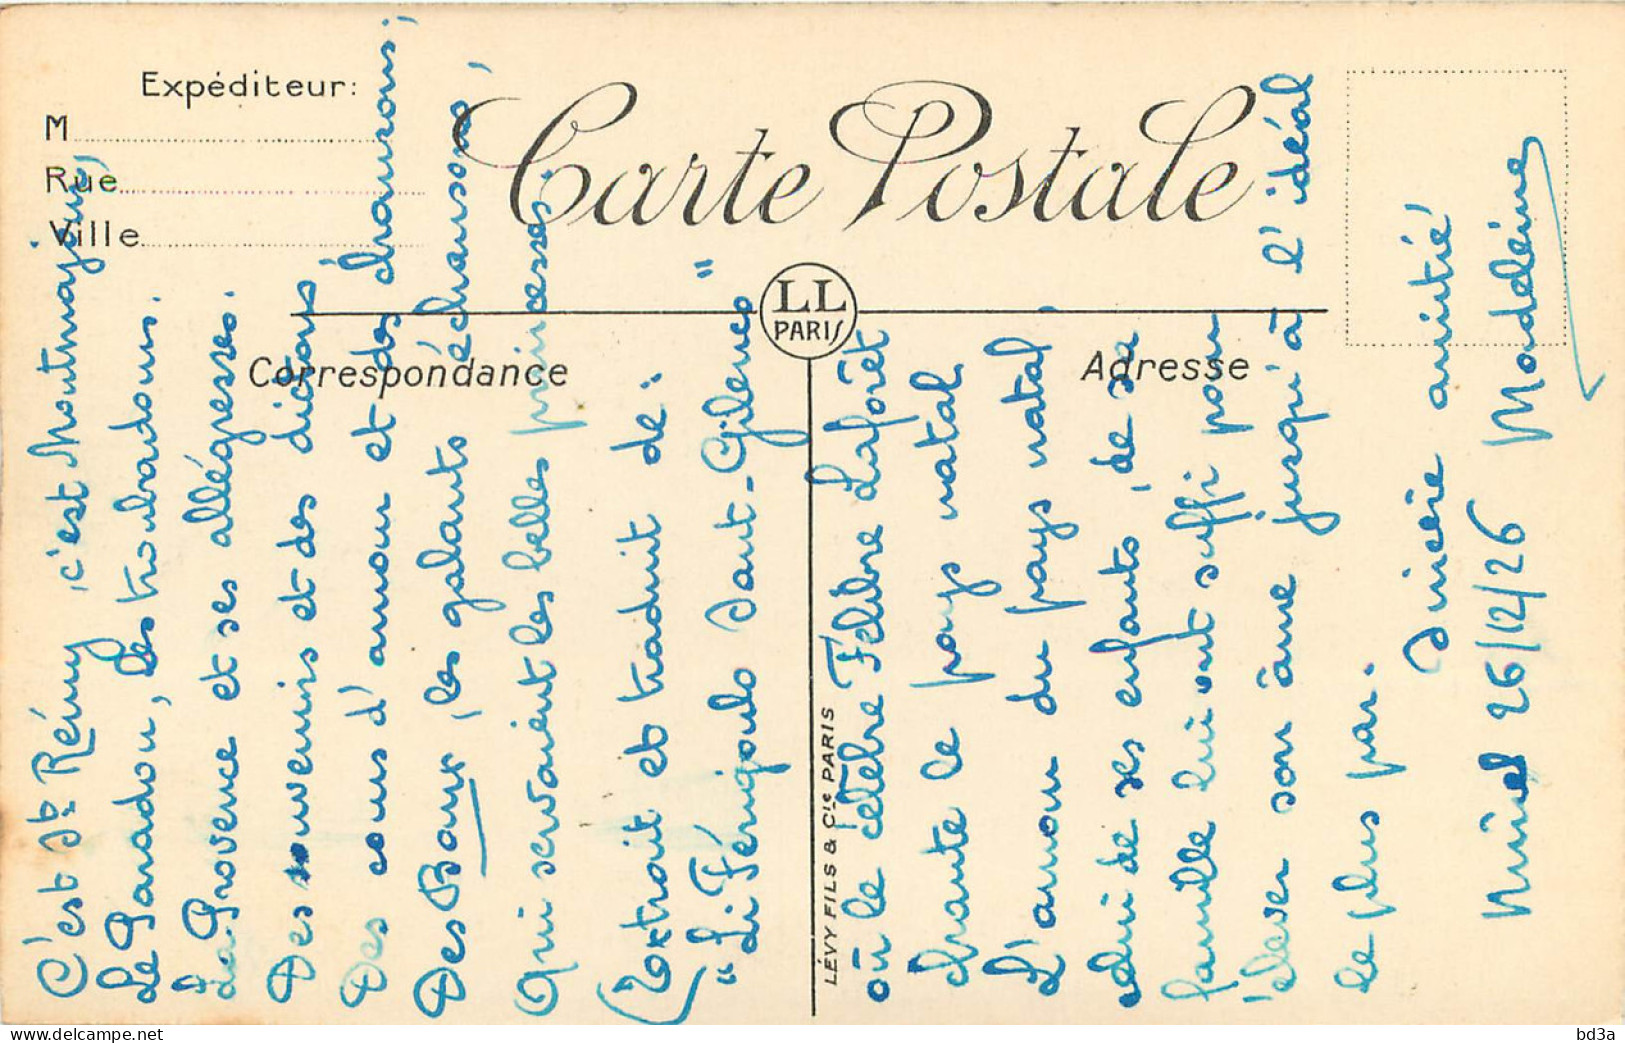 Expéditeur:
M
Rue
Ville
Carte Postale
LL
PARIS
Correspondance
Adresse
LÉVY FILS & Cie PARIS
C'est St Rémy, c'est Montmajour,
Le Paradou, les troubadours.
La Provence et ses allégresses.
Des souvenirs et des dictons
Des cours d'amour et des chansons;
Des Baux, les galants échansons,
Qui servaient les belles princesses.
(Extrait et traduit de:
"Li Férigoulo Sant-Gilenco"
où le célèbre Félibre Laforêt
chante le pays natal.
L'amour du pays natal,
celui de ses enfants, de sa
famille lui ont suffi pour
élever son âme jusqu'à l'idéal
le plus pur.
Sincère amitié
Nîmes 26/12/26 Madeleine
bd3a